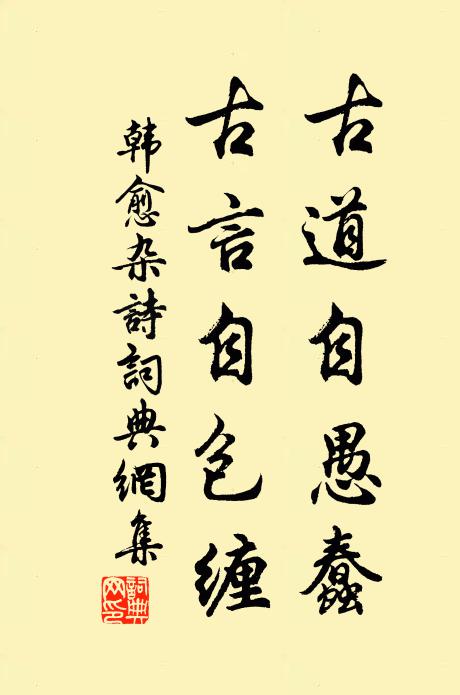 古道自愚蠢
古言自包纏
韩愈杂詩詞典網集
詞典网印